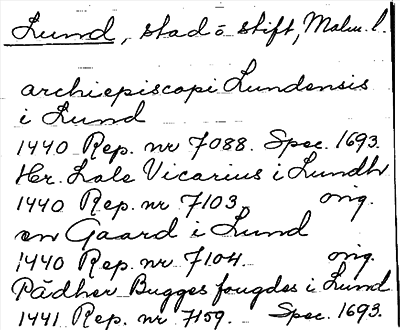 Lund, stad o stift, Malm. l.
archiepiscopi Lundensis
i Lund
1440 Rep. nr 7088. Spec. 1693.
Her. Lale Vicarius i Lundh
1440 Rep. nr 7103. orig.
en Gaard i Lund
1440 Rep. nr 7104. orig.
Pädher Bugges fougdes i Lund
1441 Rep. nr 7159. Spec. 1693.